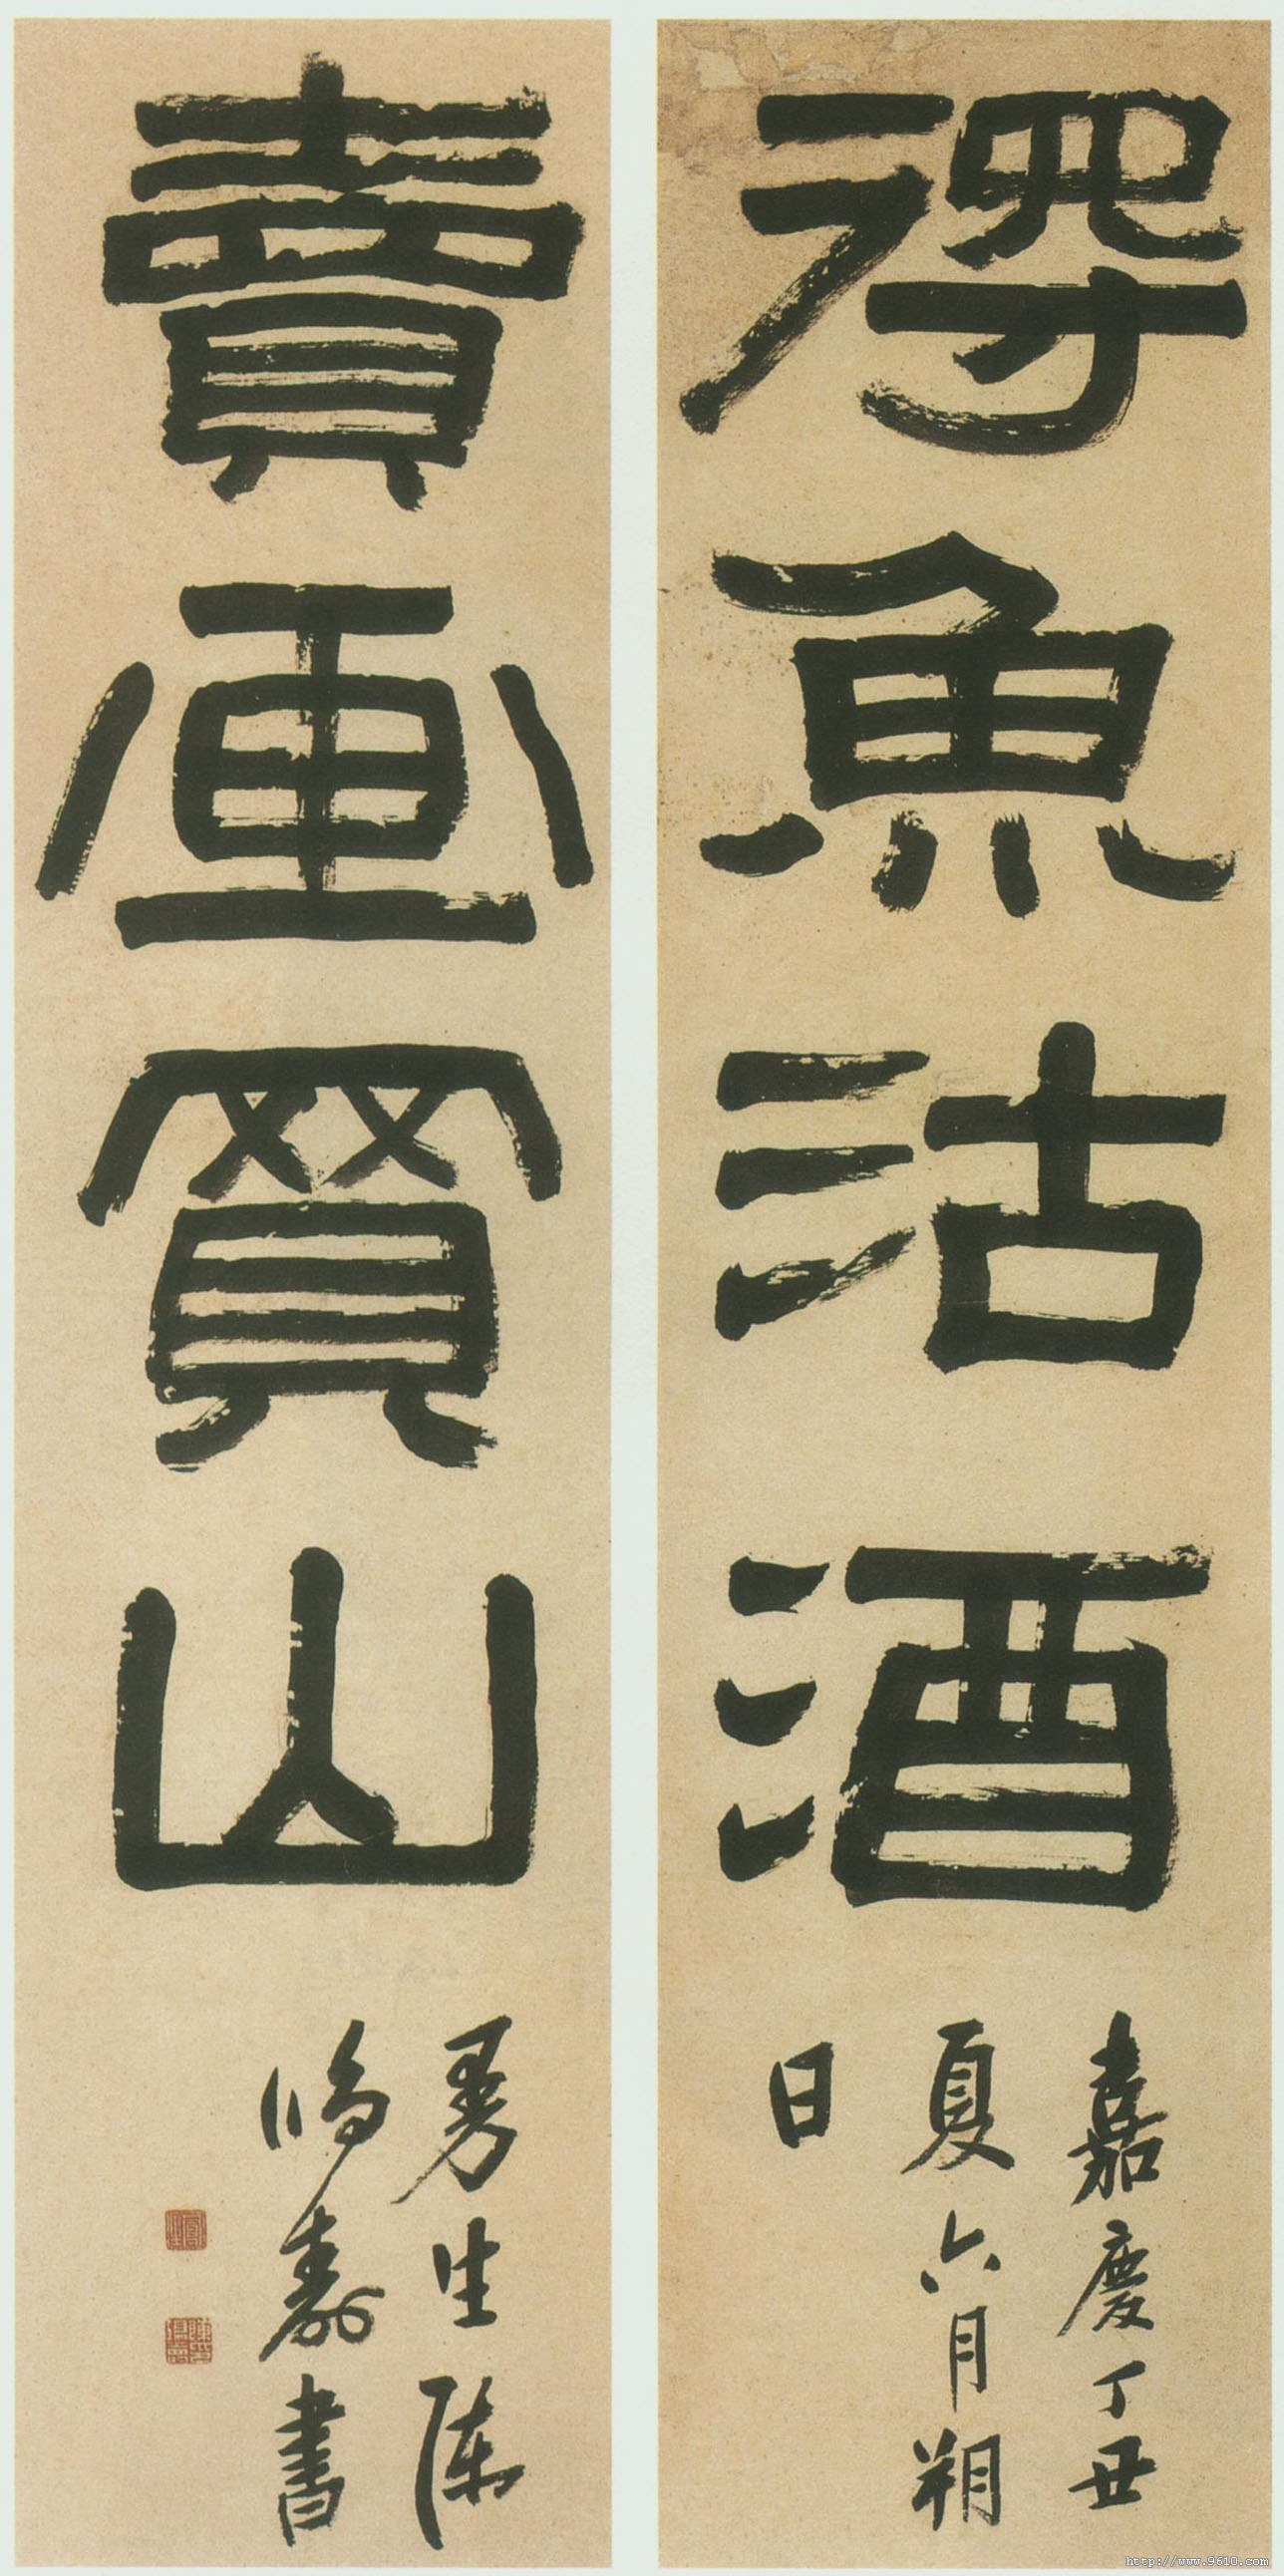 得魚沽酒
嘉慶丁丑
夏六月朔
日
賣画買山
曼生陳
鴻壽書
http://www.9610.com